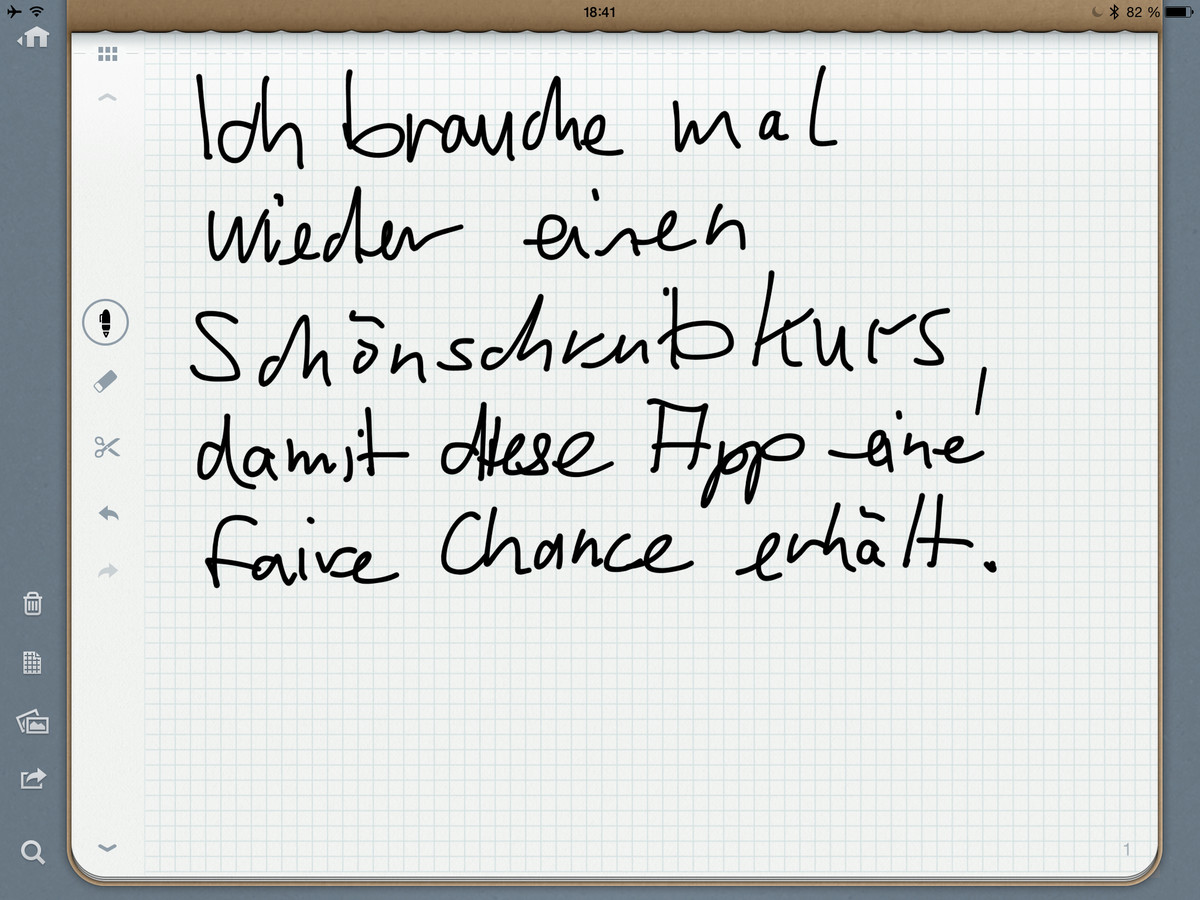 18:41
82 %
Ich brauche mal
wieder einen
Schönschreibkurs,
damit diese App eine
faire Chance erhält.
1